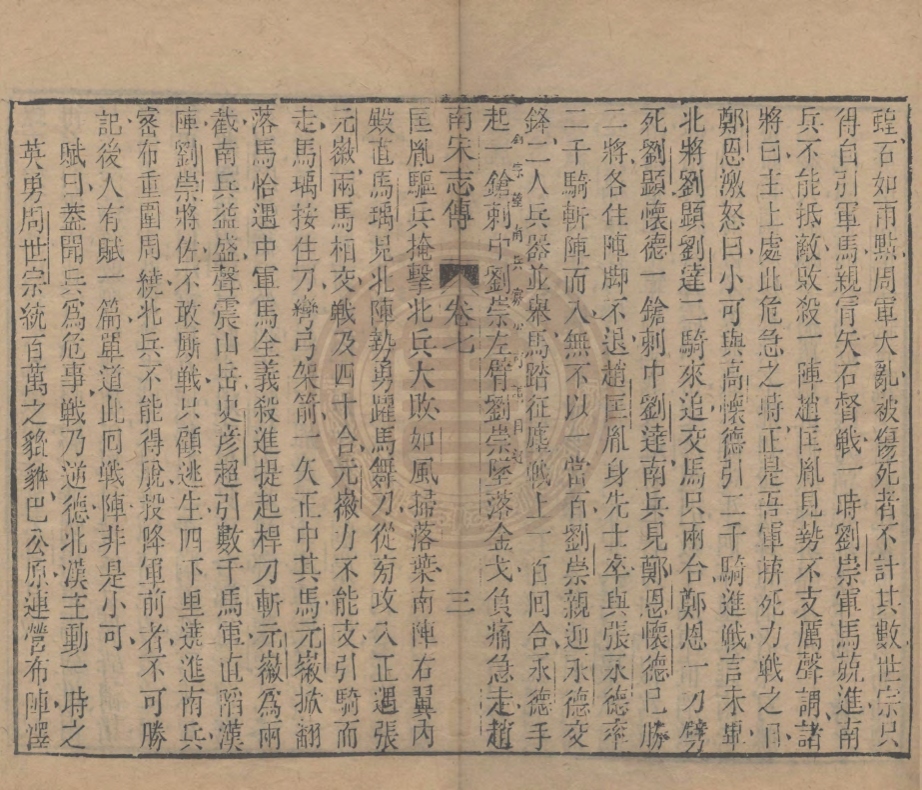 蝗石如雨點周軍大亂被傷死者不計其數世宗只
得自引軍馬親冐矢石督戰一時劉崇軍馬競進南
兵不能抵敵敗殺一陣趙匡胤見勢不支厲聲謂諸
將曰主上處此危急之時正是吾軍拚死力戰之日
鄭恩激怒曰小可與高懷德引二千騎進戰言未畢
北將劉顯劉達二騎來追交馬只兩合鄭恩一刀劈
死劉顯懷德一鎗刺中劉達南兵見鄭恩懷德已勝
二將各住陣脚不退趙匡胤身先士卒與張永德率
二千騎斬陣而入無不以一當百劉崇親迎永德交
鋒二人兵器並舉馬踏征塵戰上一百回合永德手
起一鎗刺中劉崇左臂劉崇墜落金戈負痛急走趙
南宋志傳 卷七 三
匡胤驅兵掩擊北兵大敗如風掃落葉南陣右翼內
殿直馬瑀見北陣勢勇躍馬舞刀從旁攻入正遇張
元徽兩馬相交戰及四十合元徽力不能支引騎而
走馬瑀按住刀彎弓架箭一矢正中其馬元徽掀翻
落馬恰遇中軍馬全義殺進提起桿刀斬元徽爲兩
截南兵益盛聲震山岳史彥超引數千馬軍直陷漢
陣劉崇將佐不敢厮戰只顧逃生四下里遶進南兵
密布重圍周繞北兵不能得脫投降軍前者不可勝
記後人有賦一篇單道此囘戰陣非是小可
賦曰蓋聞兵爲危事戰乃逆德北漢主動一時之
英勇周世宗統百萬之貔貅巴公原連營布陣澤